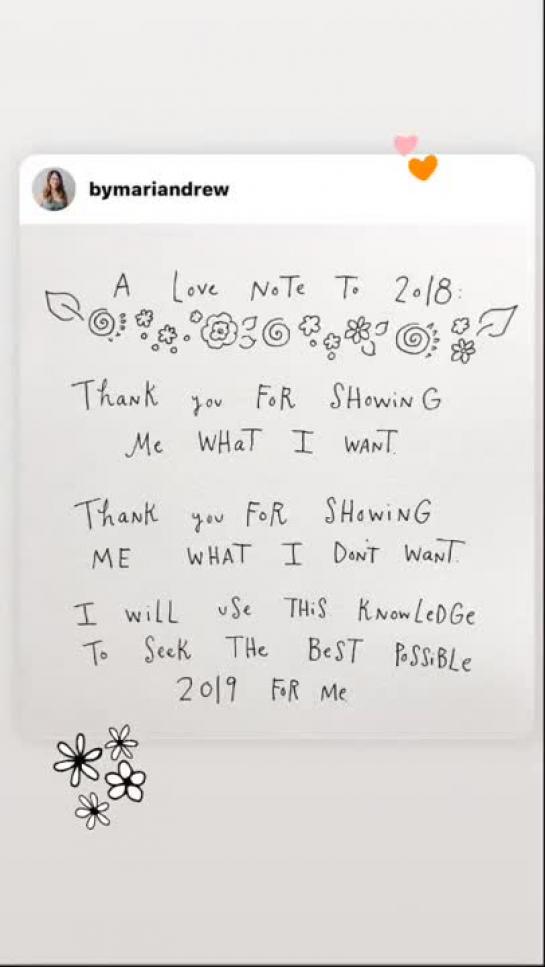 bymariandrew
A Love NoTe To 2018:
THank you FoR SHowinG
Me WHaT I WANT.
THank you FoR SHowinG
ME WHAT I DoN'T WanT.
I wiLL uSe THiS KnowLeDGe
To SeeK THe BeST PoSSiBLe
2019 FoR Me